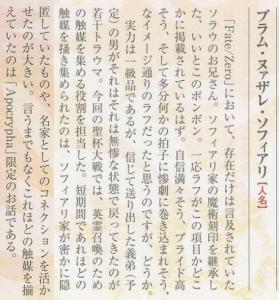 ブラム・ヌァザレ・ソフィアリ【人名】
『Fate/Zero』において、存在だけは言及されていた
ソラウのお兄さん。ソフィアリ家の魔術刻印を継承し
た、いいとこのボン・ボン。一応ラフがこの項目かどこ
かに掲載されているはず。自信満々そう、プライド高
そう、そして多分何かの拍子に惨劇に巻き込まれそう、
なイメージ通りのラフだったと思うのですが、どうか。
実力は一級品であるが、信じて送り出した義弟(予
定)の男がそれはそれは無惨な状態で戻ってきたのが
若干トラウマ。今回の聖杯大戦では、英霊召喚のため
の触媒を集める役割を担当した。短期間であれほどの
触媒を掻き集められたのは、ソフィアリ家が密かに隠
匿していたものや、名家としてのコネクションを活か
せたのが大きい。言うまでもなくこれほどの触媒を揃
えていたのは『Apocrypha』限定のお話である。